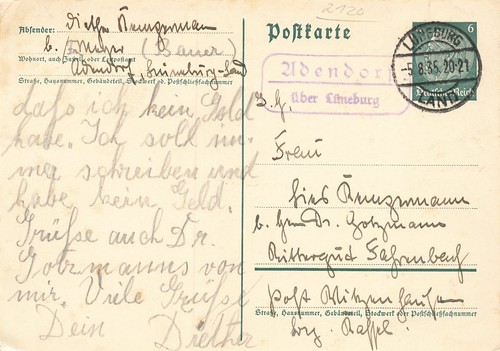 2120
Absender: Diether Krugermann
b. Meyer (Bauer)
Wohnort, auch Zustell- oder Leitpostamt
Adendorf, Lüneburg-Land
Straße, Hausnummer, Gebäudeteil, Stockwerk od. Postschließfachnummer
dass ich kein Geld
habe. Ich soll im-
mer schreiben und
habe kein Geld.
Grüße auch Dr.
Gotzmanns von
mir. Viele Grüße
Dein Diether
Postkarte
LÜNEBURG
-5.8.35.20-21
LAND
6
Deutsches Reich
Adendorf
über Lüneburg
Frau
b. Herrn Dr. Gotzmann
Rittergut Fahrenbach
Post Witzenhausen
Straße, Hausnummer, Gebäudeteil, Stockwerk oder Postschließfachnummer
Bez. Kassel.